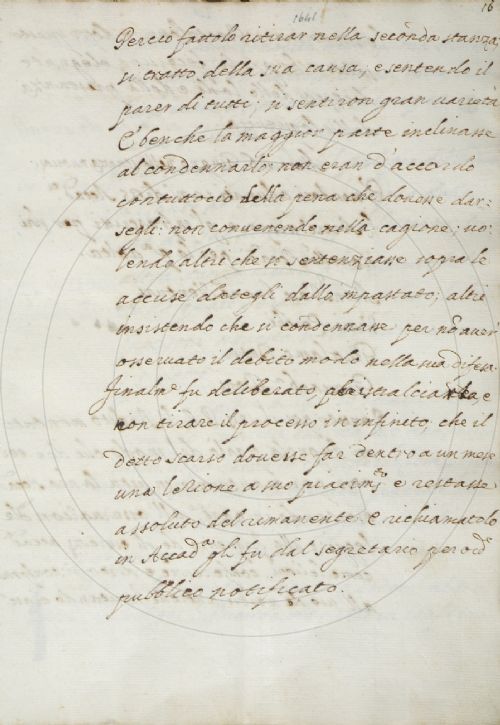 16
1641
Perciò fattolo ritirar nella seconda stanza
si trattò della sua causa, e sentendo il
parer di tutti; si sentiron gran varietà
E benche la maggior parte inclinasse
al condennarlo; non eran d'accordo
contuttociò della pena che dovesse dar=
segli: non convenendo nella cagione; vo=
lendo altri che si sentenziasse sopra le
accuse dategli dallo mpastato; altri
insistendo che si condennasse per nõ aver
osservato il debito modo nella sua difesa.
Finalm.e fu deliberato, p e
non tirare il processo in infinito, che il
detto scarso dovesse far dentro a un mese
una lezione a suo piacim.to e restasse
assoluto del rimanente. E richiamatolo
in Accad.a gli fu dal segretario per ord.e
pubblico notificato.